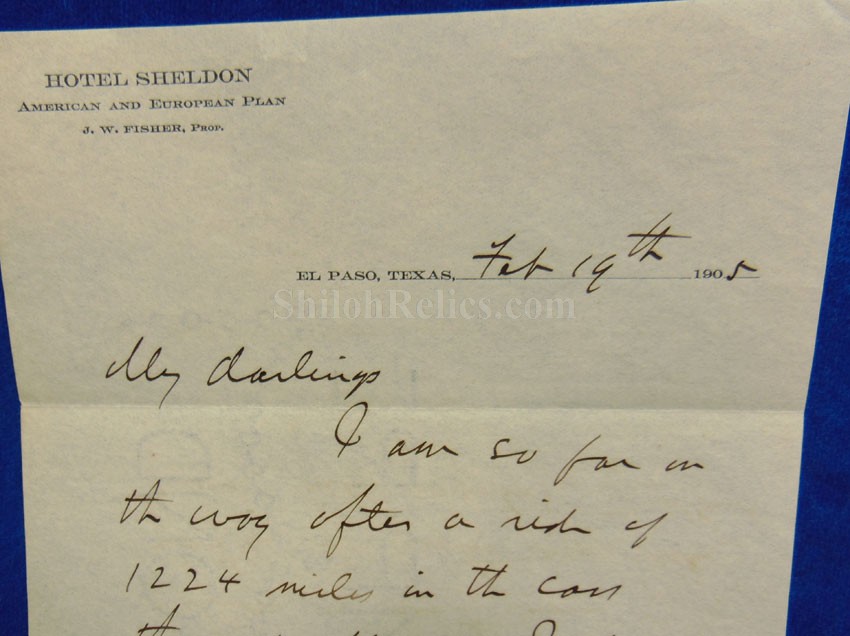 HOTEL SHELDON
AMERICAN AND EUROPEAN PLAN
J. W. FISHER, PROP.
EL PASO, TEXAS, Feb 19th 1905
ShilohRelics.com
My darlings
I am so far on
the way after a ride of
1224 miles in the cars